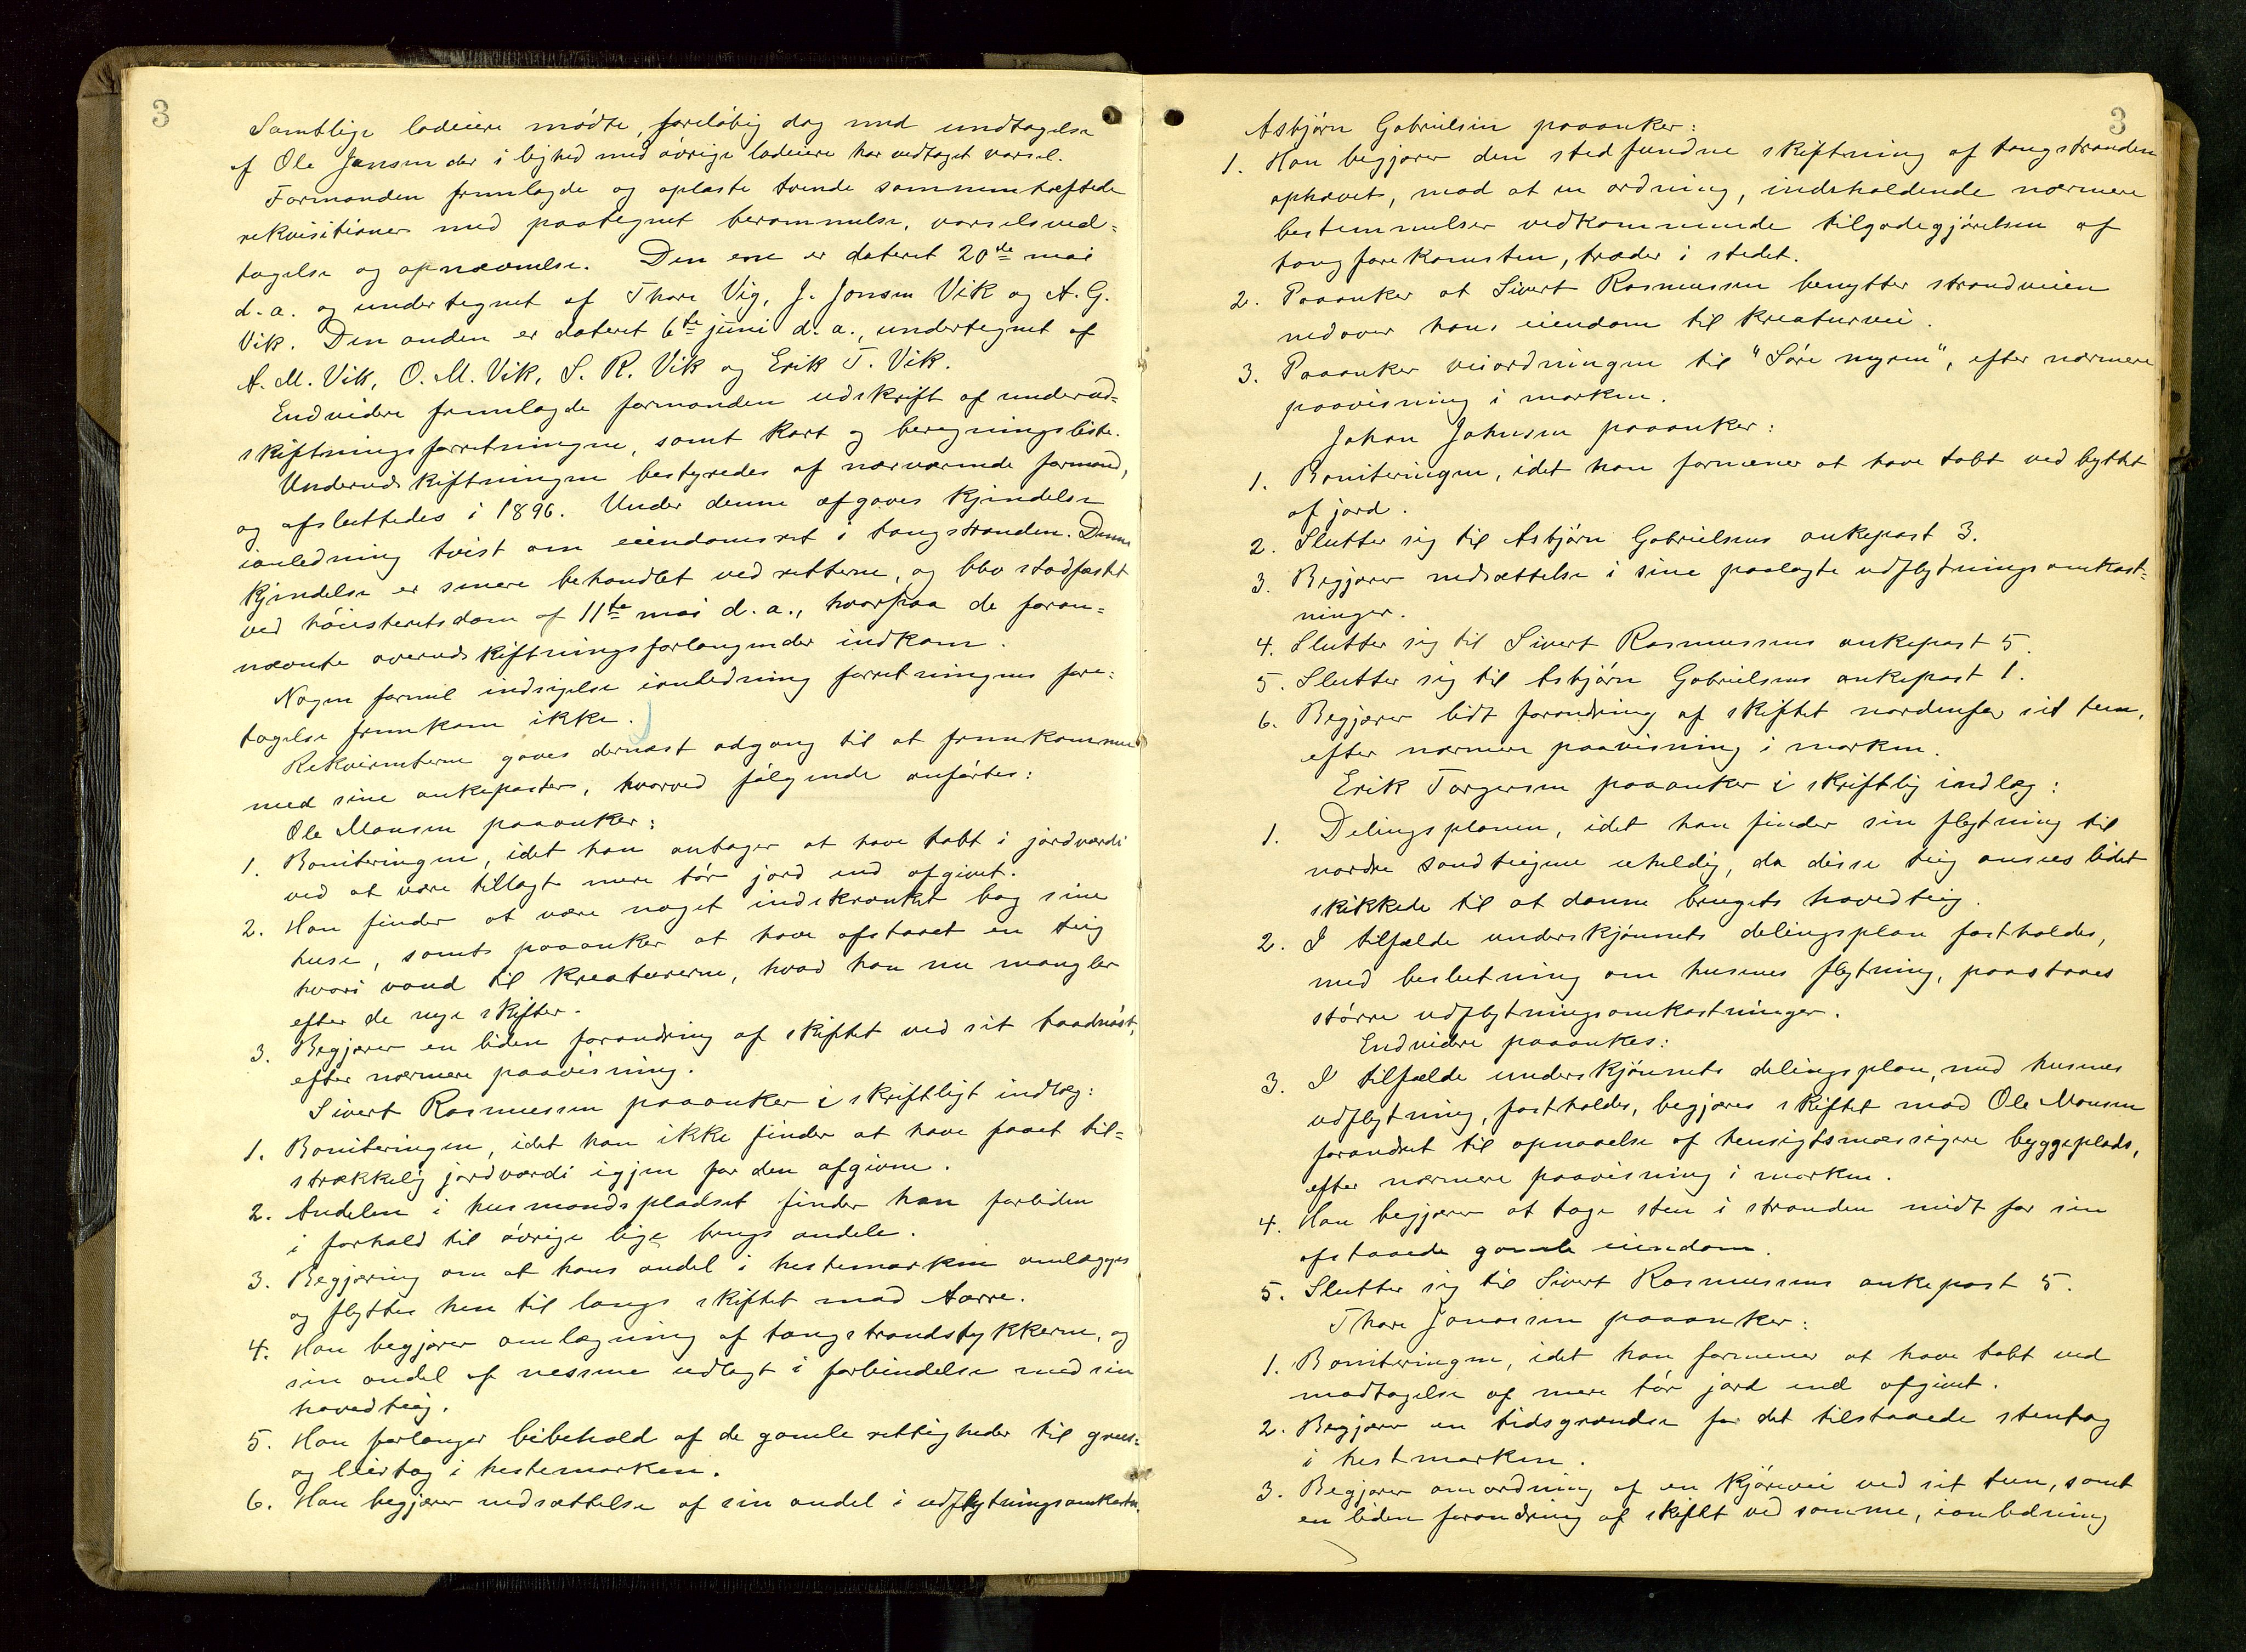 3
Samtlige lodeiere mødte, foreløbig dog med undtagelse
af Ole Jansen der i lighed med øvrige lodeiere har vedtaget varsel.
Formanden fremlagde og oplæste tvende sammenhæftede
rekvisitioner med paategnet berammelse, varselsved-
tagelse og opnævnelse. Den ene er dateret 20de mai
d. a. og undertegnet af Thore Vig, J. Jonsen Vik og A. G.
Vik. Den anden er dateret 6te juni d. a., undertegnet af
A. M. Vik, O. M. Vik, S. R. Vik og Erik T. Vik.
Endvidere fremlagde formanden udskrift af underud-
skiftningsforretningen, samt kart og beregningsliste.
Underudskiftningen bestyredes af nærværende formand,
og afsluttedes i 1896. Under denne afgaves kjendelse
ianledning tvist om eiendomsret i tangstranden. Denne
kjendelse er senere behandlet ved retterne, og blev stadfæstet
ved høiesteretsdom af 11te mai d. a., hvorpaa de foran-
nævnte overudskiftningsforlangender indkom.
Nogen formel indsigelse ianledning forretningens fore-
tagelse fremkom ikke.
Rekvirenterne gaves dernæst adgang til at fremkomme
med sine ankeposter, hvorved følgende anførtes:
Ole Monsen paaanker:
1. Boniteringen, idet han antager at have tabt i jordværdi
ved at være tillagt mere tør jord end afgivet.
2. Han finder at være noget indskrænket bag sine
huse, samt paaanker at have afstaaet en teig
hvori vand til kreaturerne, hvad han nu mangler
efter de nye skifter.
3. Begjærer en liden forandring af skiftet ved sit baadnøst,
efter nærmere paavisning.
Sivert Rasmussen paaanker i skriftligt indlæg:
1. Boniteringen, idet han ikke finder at have faaet til-
strækkelig jordværdi igjen for den afgivne.
2. Andelen i husmandspladset finder han forliden
i forhold til øvrige lige brugs andele.
3. Begjæring om at hans andel i hestemarken omlægges
og flyttes hen til langs skiftet mod Aarre.
4. Han begjærer omlægning af tangstrandstykkerne, og
sin andel af nessene udlagt i forbindelse med sin
hovedteig.
5. Han forlanger bibehold af de gamle rettigheder til grus-
og leirtag i hestemarken.
6. Han begjærer nedsættelse af sin andel i udflytningsomkostn.
3
Asbjørn Gabrielsen paaanker:
1. Han begjærer den stedfundne skiftning af tangstranden
ophævet, mod at en ordning, indeholdende nærmere
bestemmelser vedkommende tilgodegjørelsen af
tangforekomsten, træder i stedet.
2. Paaanker at Sivert Rasmussen benytter strandveien
nedover hans eiendom til kreaturvei.
3. Paaanker veiordningen til "Søre myren", efter nærmere
paavisning i marken.
Johan Johnsen paaanker:
1. Boniteringen, idet han formener at have tabt ved byttet
af jord.
2. Slutter sig til Asbjørn Gabrielsens ankepost 3.
3. Begjærer nedsættelse i sine paalagte udflytningsomkost-
ninger.
4. Slutter sig til Sivert Rasmussens ankepost 5.
5. Slutter sig til Asbjørn Gabrielsens ankepost 1.
6. Begjærer lidt forandring af skiftet nordenfor sit tun,
efter nærmere paavisning i marken.
Erik Torgersen paaanker i skriftlig indlæg:
1. Delingsplanen, idet han finder sin flytning til
nordre sandteigene uheldig, da disse teig ansees lidet
skikkede til at danne brugets hovedteig.
2. I tilfælde underskjønnets delingsplan fastholdes,
med beslutning om husenes flytning, paastaaes
større udflytningsomkostninger.
Endvidere paaankes:
3. I tilfælde underskjønnets delingsplan, med husenes
udflytning, fastholdes, begjæres skiftet mod Ole Monsen
forandret til opnaaelse af hensigtsmæssigere byggeplads,
efter nærmere paavisning i marken.
4. Han begjærer at tage sten i stranden midt for sin
afstaaede gamle eiendom.
5. Slutter sig til Sivert Rasmussens ankepost 5.
Thore Jonassen paaanker:
1. Boniteringen, idet han formener at have tabt ved
modtagelse af mere tør jord end afgivet.
2. Begjærer en tidsgrændse for det tilstaaede stentag
i hestmarken.
3. Begjærer omordning af en kjørevei ved sit tun, samt
en liden forandring af skiftet ved samme, ianledning